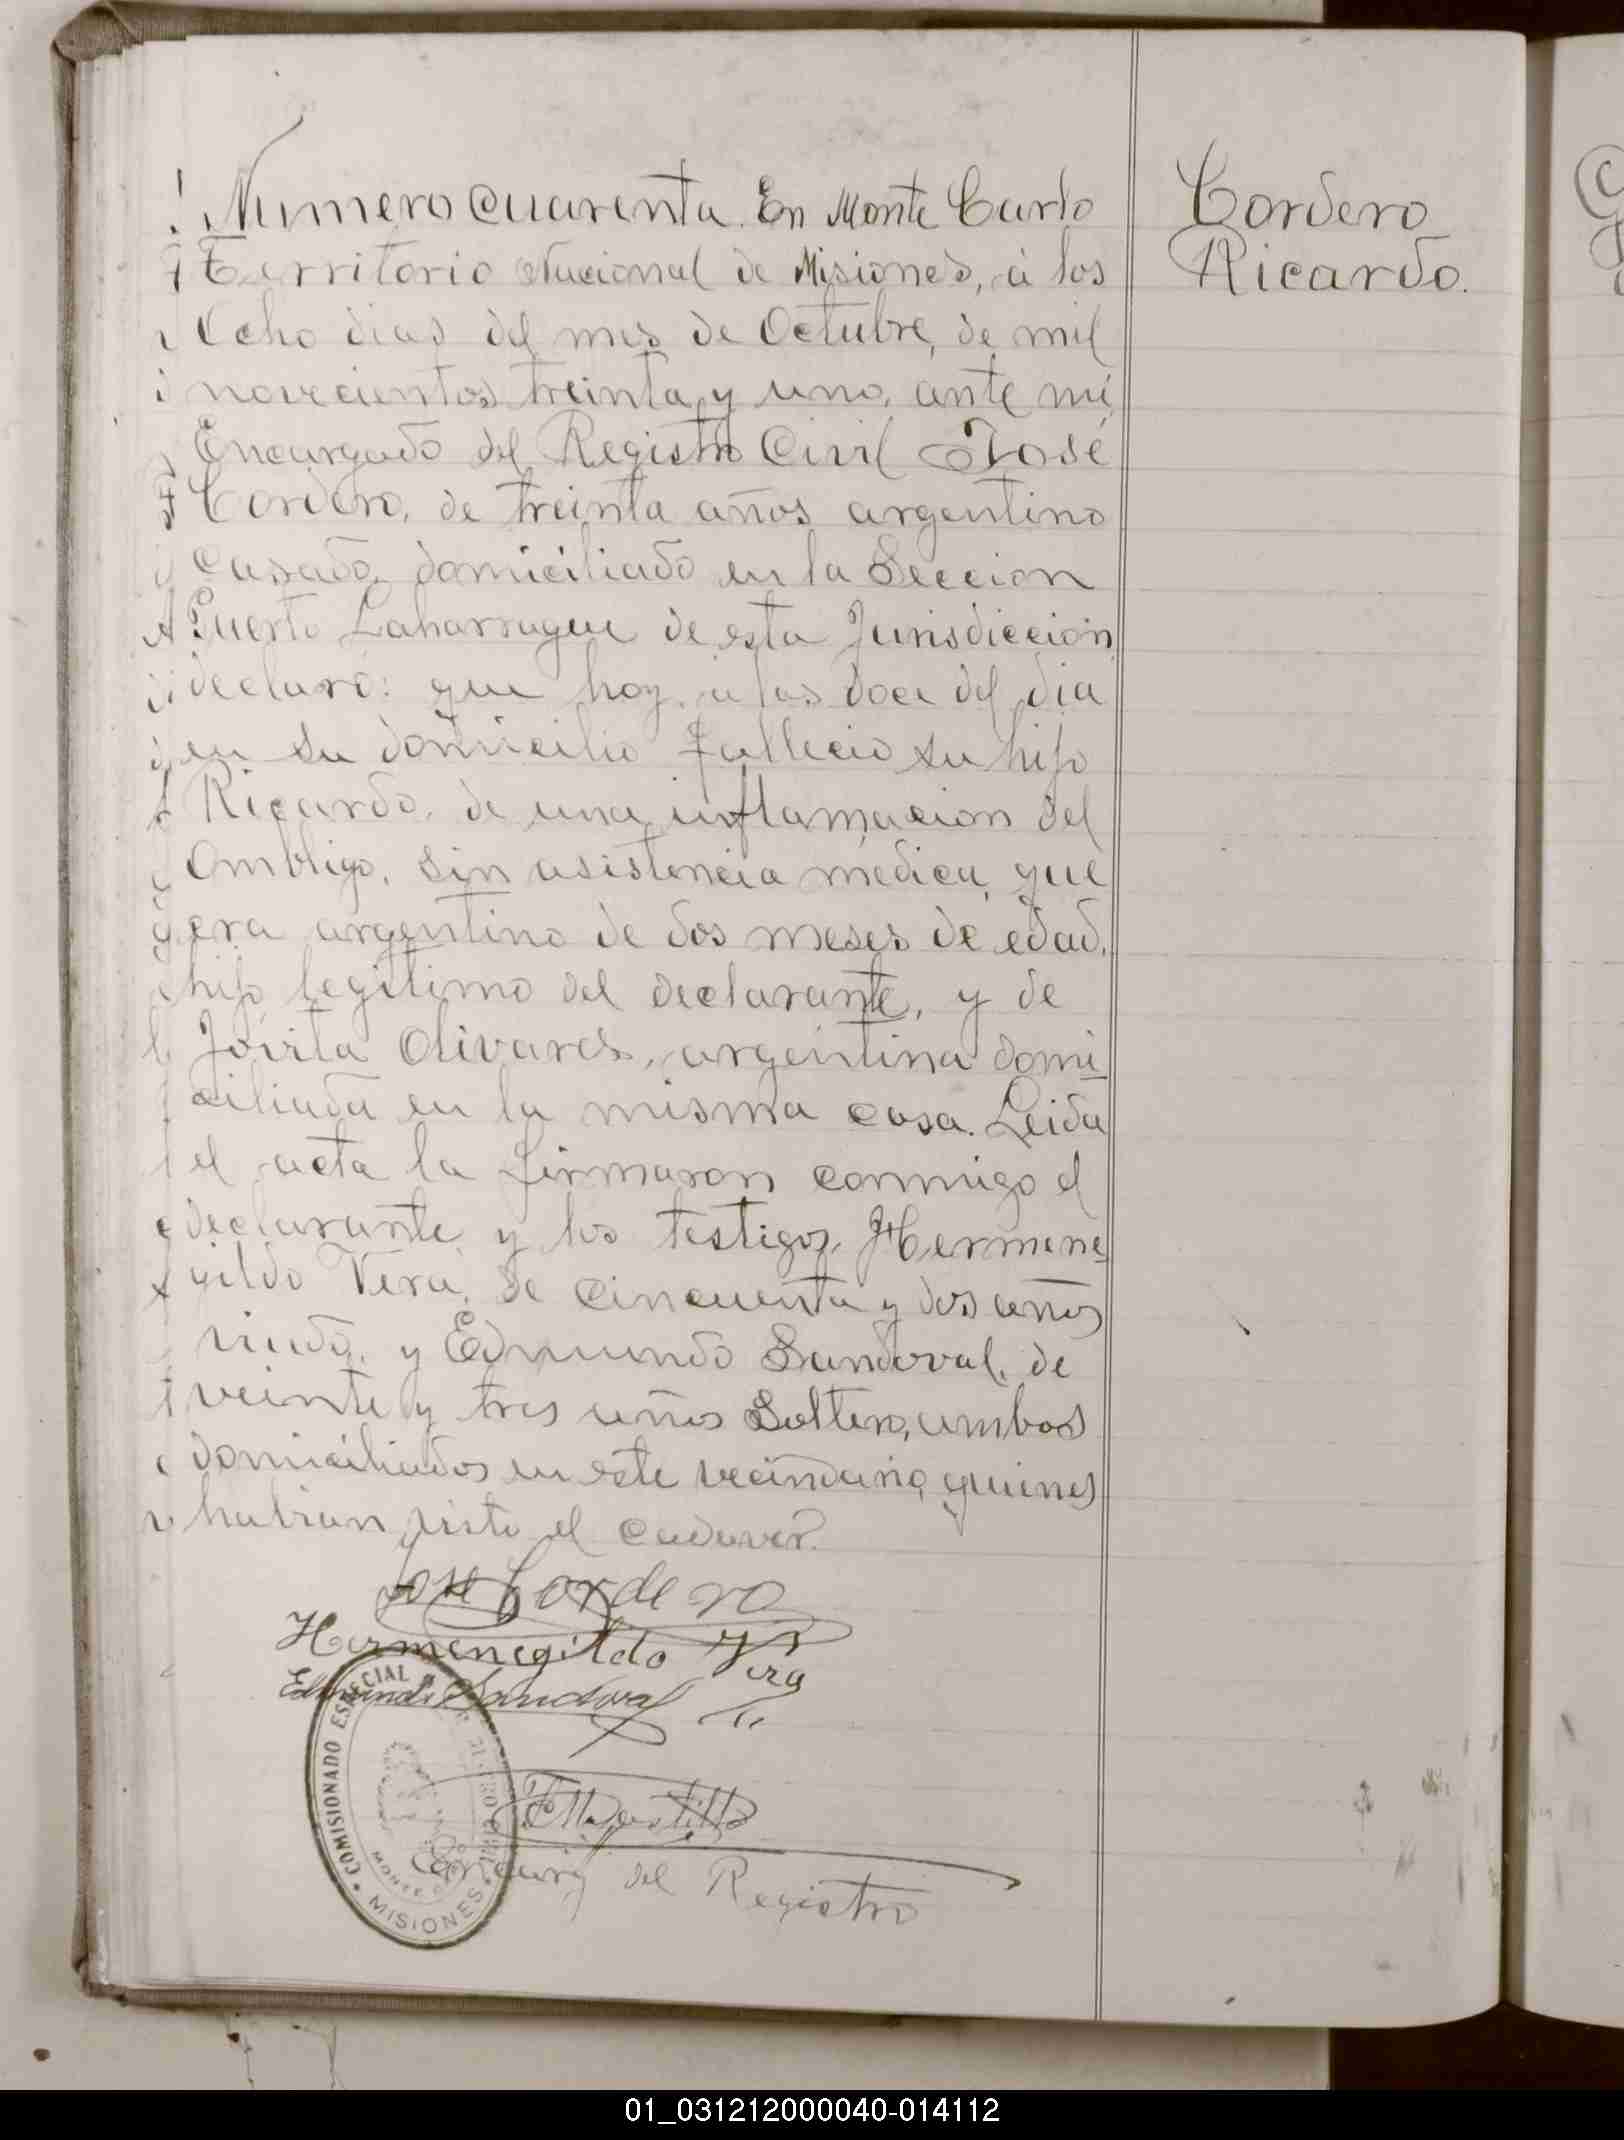 Numero Cuarenta. En Monte Carlo
Territorio Nacional de Misiones, á los
Ocho dias del mes de Octubre, de mil
novecientos treinta y uno, ante mí
Encargado del Registro Civil José
Cordero, de treinta años argentino
casado, domiciliado en la Seccion
Puerto Laharrague de esta Jurisdiccion
declaró: que hoy, a las doce del dia
en su domicilio fallecio su hijo
Ricardo, de una inflamacion del
Ombligo, sin asistencia médica, que
era argentino de dos meses de edad,
hijo legitimo del declarante, y de
Jovita Olivares, argentina domi
ciliada en la misma casa. Leida
el acta la firmaron conmigo el
declarante y los testigos, Hermene
gildo Vera, de cincuenta y dos años
viudo, y Edmundo Sandoval, de
veinte y tres años Soltero, ambos
domiciliados en este vecindario, quienes
habian visto el cadaver.
Cordero
Ricardo.
Jose Cordero
Hermenegildo Vera
Edmundo Sandoval
COMISIONADO ESPECIAL
MONTE
MISIONES
del Registro
01_031212000040-014112